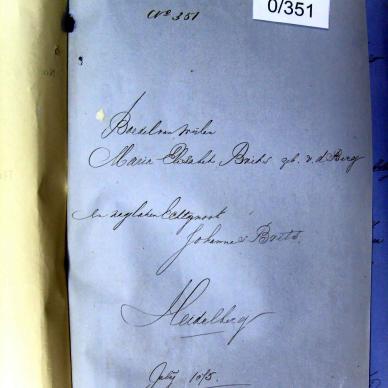 0/351
No 351
Boedel van wijlen
Maria Elizabeth Brits gb. v. d. Berg
en nagelaten Echtgenoot
Johannes Brits.
Heidelberg
July